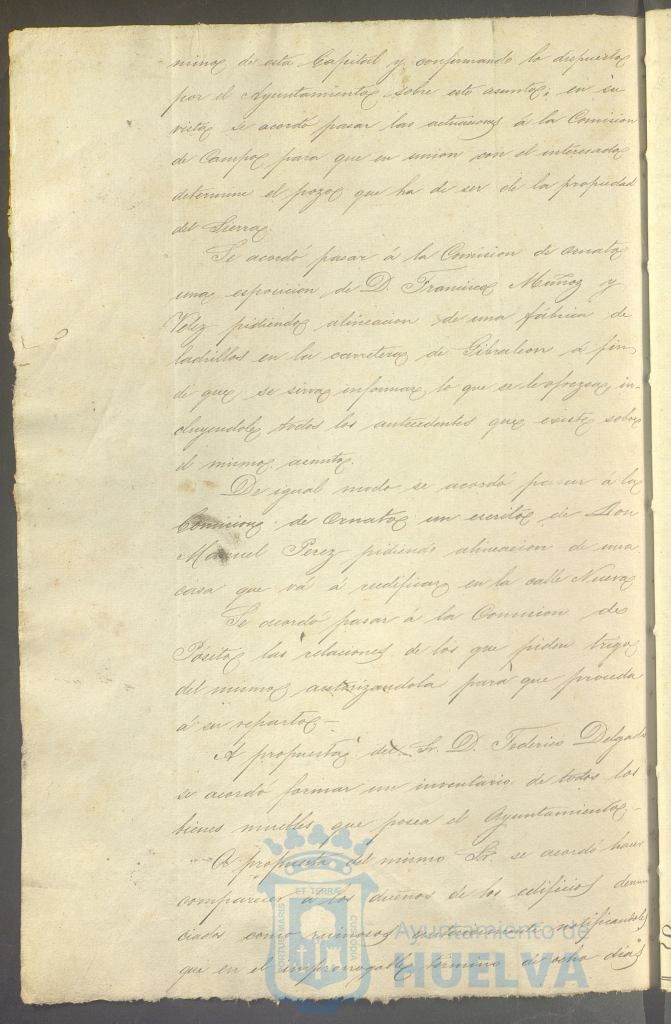 mino de esta Capital y confirmando lo dispuesto
por el Ayuntamiento sobre este asunto, en su
vista se acordó pasar las actuaciones á la Comision
de Campo para que en union con el interesado
determine el pozo que ha de ser de la propiedad
del Sierra.
Se acordó pasar á la Comision de ornato
una esposicion de D. Francisco Muñoz y
Velez pidiendo alineacion de una fábrica de
ladrillos en la carretera de Gibraleon á fin
de que se sirva informar lo que se le ofrezca, in-
cluyendole todos los antecedentes que existe sobre
el mismo asunto.
De igual modo se acordó pasar á la
Comision de Ornato un escrito de Don
Manuel Perez pidiendo alineacion de una
casa que vá á redificar en la calle Nueva
Se acordó pasar á la Comision de
Pósito las relaciones de los que piden trigo
del mismo autorizandola para que proceda
á su reparto—
A propuesta del Sr. D. Federico Delgado
se acordó formar un inventario de todos los
bienes muebles que posea el Ayuntamiento.—
A propuesta del mismo Sr. se acordó hacer
comparecer á los dueños de los edificios denun
ciados como ruinosos notificandoles
que en el improrrogable término de ocho dias
PORTUS MARIS
ET TERRÆ
CUSTODIA
Ayuntamiento de
HUELVA